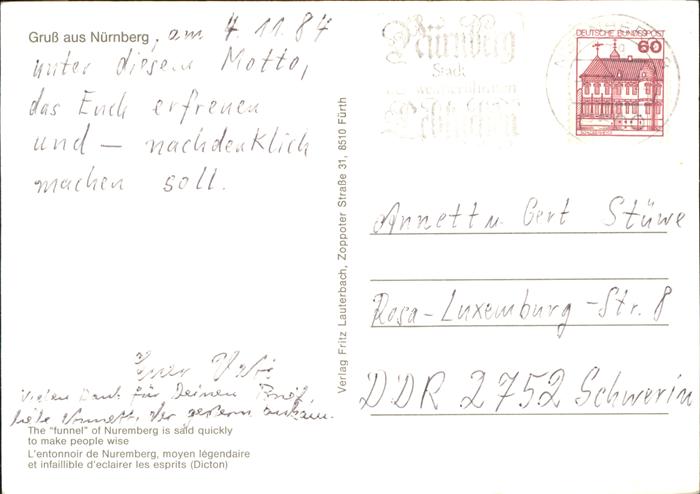 Gruß aus Nürnberg, am 4.11.84
unter diesem Motto,
das Euch erfreuen
und – nachdenklich
machen soll.
Euer
Vielen Dank für Deinen Brief,
liebe Annett, der gestern ankam.
The "funnel" of Nuremberg is said quickly
to make people wise
L'entonnoir de Nuremberg, moyen légendaire
et infaillible d'eclairer les esprits (Dicton)
Verlag Fritz Lauterbach, Zoppoter Straße 31, 8510 Fürth
Nürnberg
Stadt
Lebkuchen
DEUTSCHE BUNDESPOST
60
Annett u. Gert Stüwe
Rosa-Luxemburg-Str. 8
DDR 2752 Schwerin